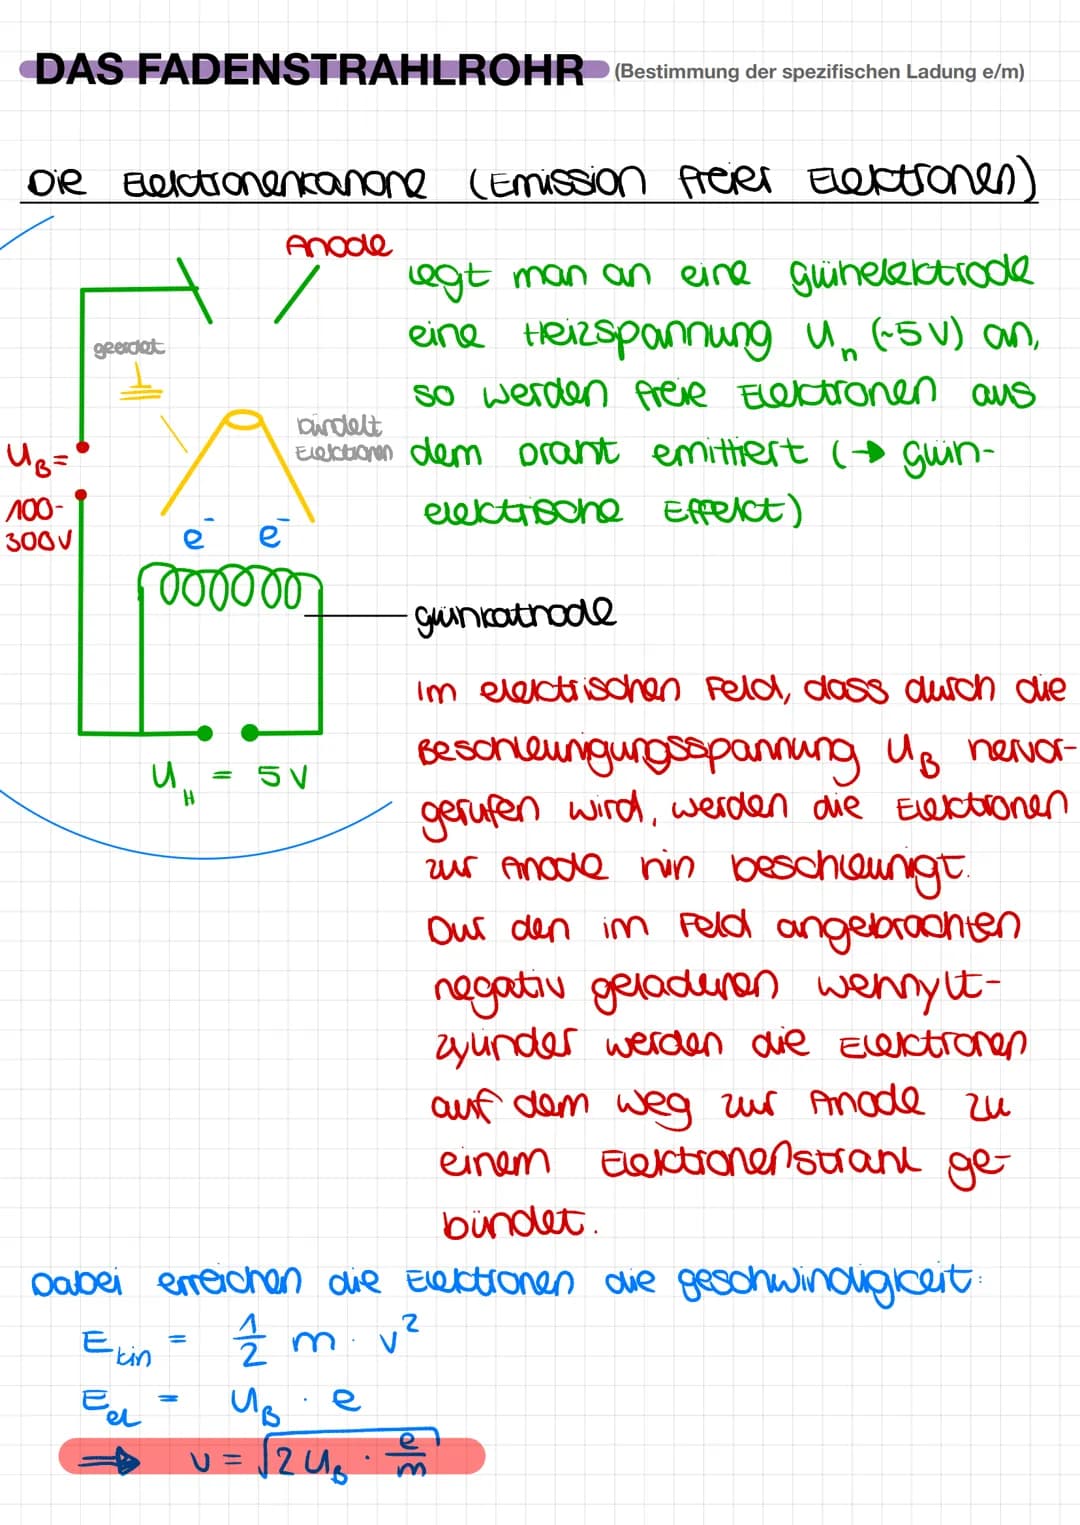 DAS FADENSTRAHLROHR (Bestimmung der spezifischen Ladung e/m)
Die Elektronenkanone (Emission freier Elektronen)
Anode
geerdet
bündelt
Elektronen
U_B =
100-
300V
e⁻ e⁻
U_H = 5V
Legt man an eine Glühelektrode
eine Heizspannung U_h (~5V) an,
so werden freie Elektronen aus
dem Draht emittiert (→ Glüh-
elektrische Effekt)
Glühkathode
Im elektrischen Feld, dass durch die
Beschleunigungsspannung U_B hervor-
gerufen wird, werden die Elektronen
zur Anode hin beschleunigt.
Dur den im Feld angebrachten
negativ geladenen Wehnylt-
zylinder werden die Elektronen
auf dem Weg zur Anode zu
einem Elektronenstrahl ge-
bündet.
Dabei erreichen die Elektronen die Geschwindigkeit:
E_kin = 1/2 m · v²
E_el = U_B · e
⇒ v = √(2 U_B · e/m)